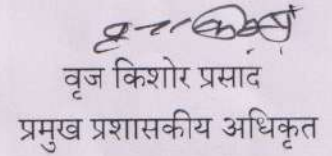 वृज किशोर प्रसाद
प्रमुख प्रशासकीय अधिकृत